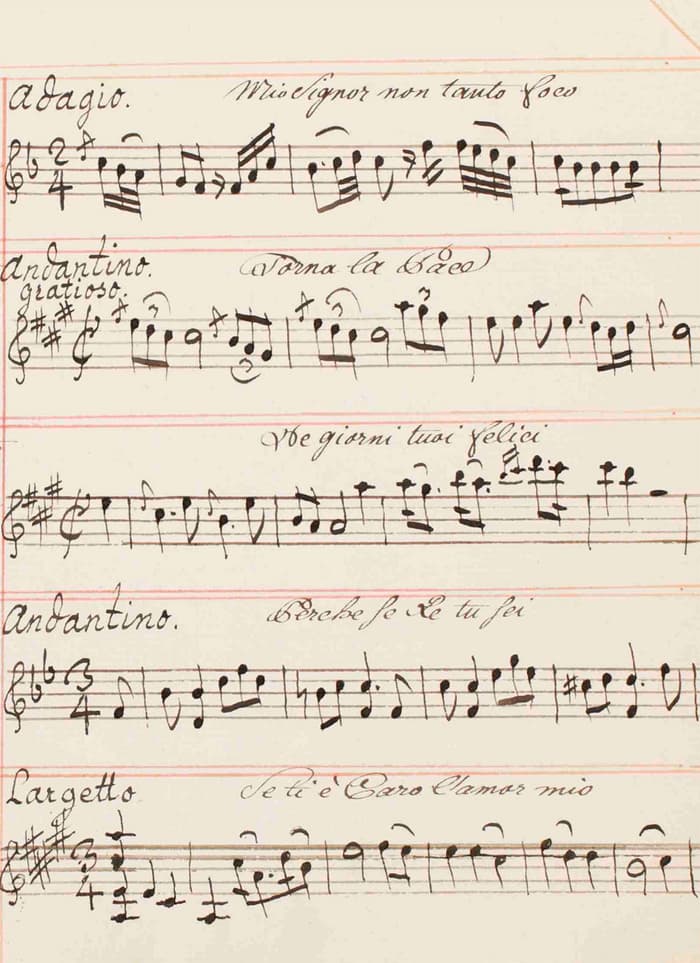 Adagio.
Mio Signor non tanto foco
2
4
Andantino.
gratioso.
Torna la Pace
3
3
3
3
De giorni tuoi felici
Andantino.
Perche se Re tu sei
3
4
Largetto
Se ti è Caro l'amor mio
3
4